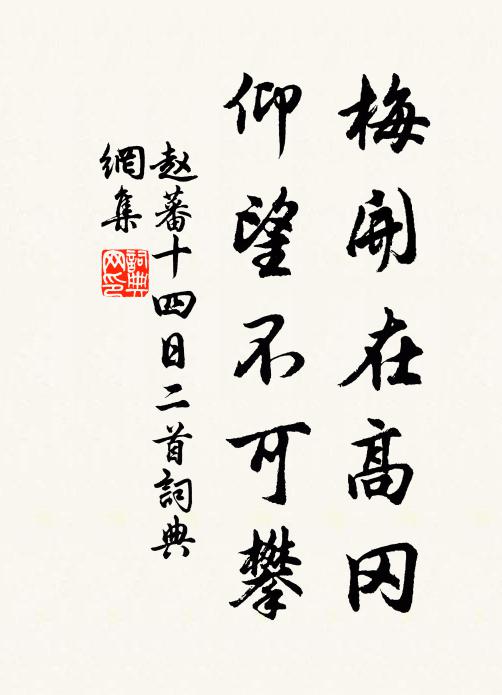 梅開在高冈
仰望不可攀
赵蕃十四日二首詞典
網集
詞典
网印